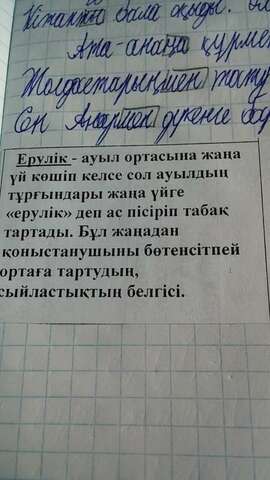 Кітапты бала оқыды.
Ата-анаңа құрмет
Жолдастарыңмен тату
Сен Анармен дүкенге бар
Ерулік - ауыл ортасына жаңа
үй көшіп келсе сол ауылдың
тұрғындары жаңа үйге
«ерулік» деп ас пісіріп табақ
тартады. Бұл жаңадан
қоныстанушыны бөтенсітпей
ортаға тартудың,
сыйластықтың белгісі.